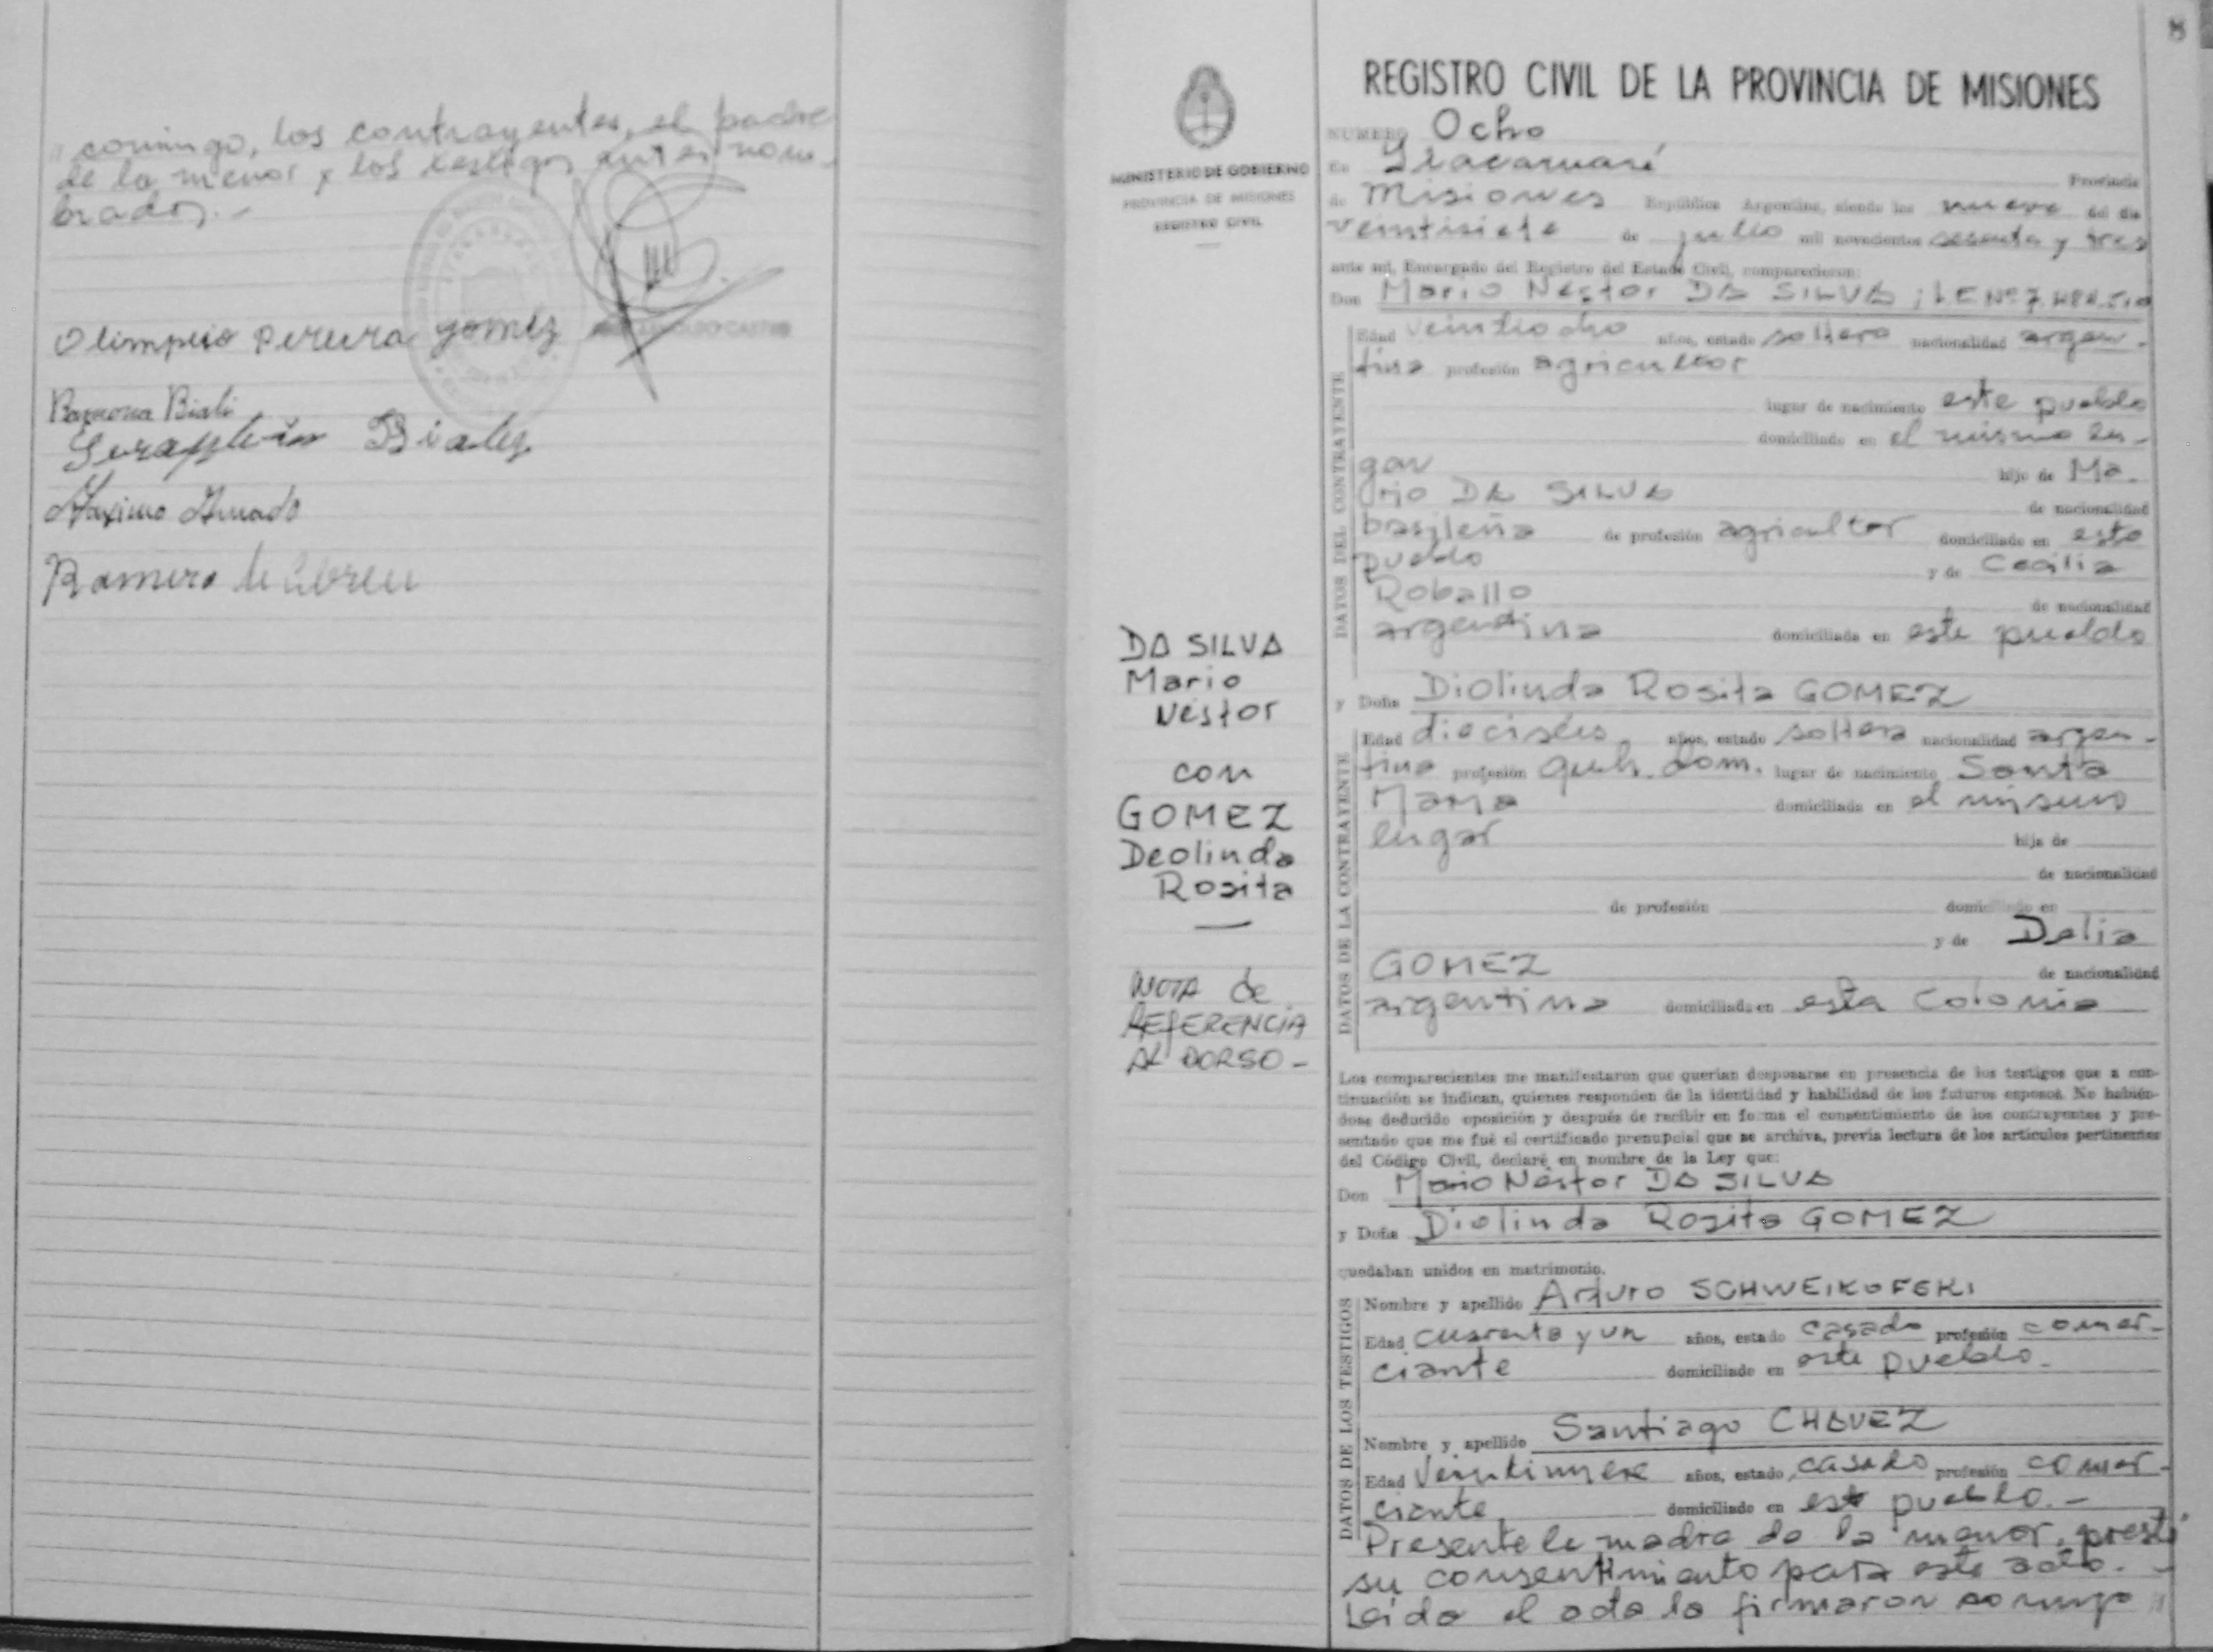 conmigo, los contrayentes, el padre
de la menor y los testigos antes nom-
brados.-
Olimpio Pereira Gomez
Ramona Biali
Seraphin Bialy
Maximo Amado
Ramiro
8
MINISTERIO DE GOBIERNO
PROVINCIA DE MISIONES
REGISTRO CIVIL
DA SILVA
Mario
Néstor
con
GOMEZ
Deolinda
Rosita
NOTA de
REFERENCIA
AL DORSO-
REGISTRO CIVIL DE LA PROVINCIA DE MISIONES
NUMERO Ocho
En Itacaruaré Provincia
de Misiones República Argentina, siendo las nueve del dia
veintisiete de julio mil novecientos sesenta y tres
ante mi, Encargado del Registro del Estado Civil, comparecieron:
Don Mario Néstor DA SILVA; LE Nº 7.
Edad veintiocho años, estado soltero nacionalidad argen-
tina profesión agricultor
lugar de nacimiento este pueblo
domiciliado en el mismo lu-
gar hijo de Ma-
rio DA SILVA de nacionalidad
brasileña de profesión agricultor domiciliado en este
pueblo y de Cecilia
Roballo de nacionalidad
argentina domiciliada en este pueblo
DATOS DEL CONTRAYENTE
y Doña Diolinda Rosita GOMEZ
Edad dieciséis años, estado soltera nacionalidad argen-
tina profesión queh. dom. lugar de nacimiento Santa
María domiciliada en el mismo
lugar hija de
de nacionalidad
de profesión domiciliado en
y de Delia
GOMEZ de nacionalidad
argentina domiciliada en esta Colonia
DATOS DE LA CONTRAYENTE
Los comparecientes me manifestaron que querían desposarse en presencia de los testigos que a con-
tinuación se indican, quienes responden de la identidad y habilidad de los futuros esposos. No habién-
dose deducido oposición y después de recibir en forma el consentimiento de los contrayentes y pre-
sentado que me fué el certificado prenupcial que se archiva, previa lectura de los artículos pertinentes
del Código Civil, declaré en nombre de la Ley que:
Don Mario Néstor DA SILVA
y Doña Diolinda Rosita GOMEZ
quedaban unidos en matrimonio.
Nombre y apellido Arturo SCHWEIKOFSKI
Edad cuarenta y un años, estado casado profesión comer-
ciante domiciliado en este pueblo-
Nombre y apellido Santiago CHAVEZ
Edad veintinueve años, estado casado profesión comer-
ciante domiciliado en este pueblo.-
DATOS DE LOS TESTIGOS
Presente la madre de la menor, prestó
su consentimiento para este acto.-
Leida el acta la firmaron conmigo